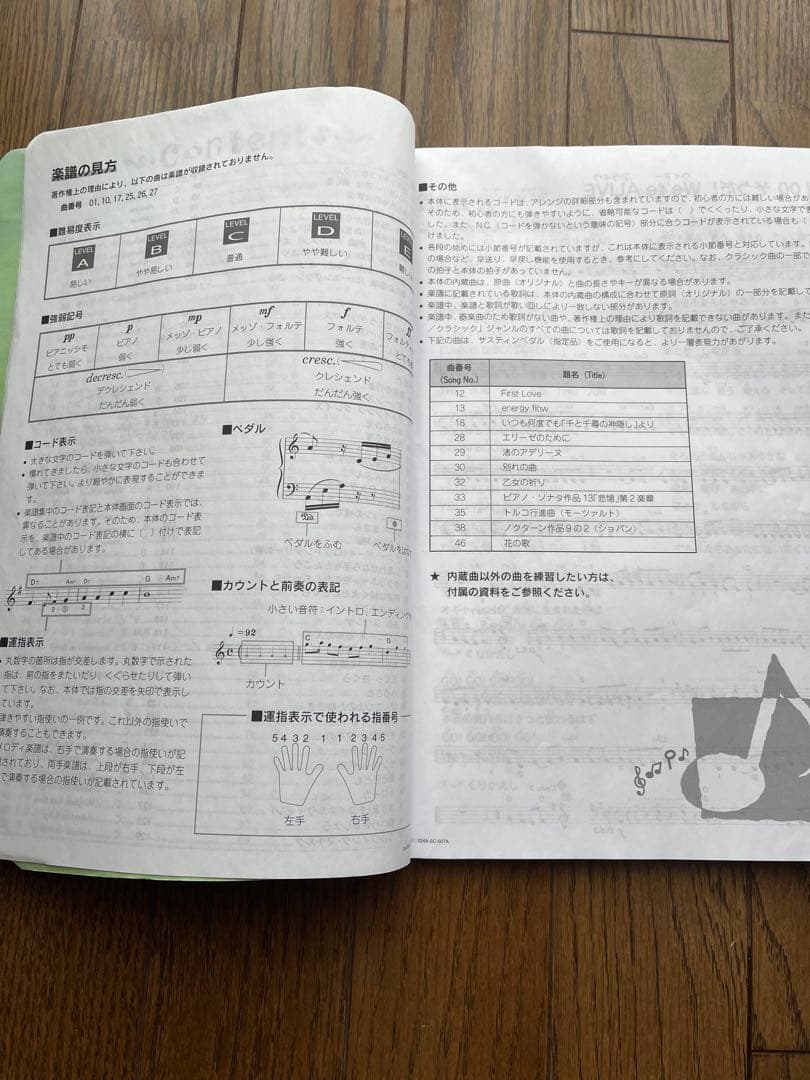 楽譜の見方
著作権上の理由により、以下の曲は楽譜が収録されておりません。
曲番号 01, 10, 17, 25, 26, 27
■難易度表示
LEVEL A
LEVEL B
LEVEL C
LEVEL D
E
易しい
やや易しい
普通
やや難しい
難し
■強弱記号
pp
p
mp
mf
f
ff
ピアニッシモ
ピアノ
メッゾ・ピアノ
メッゾ・フォルテ
フォルテ
フォルテ
とても弱く
弱く
少し弱く
少し強く
強く
とても
decresc.
デクレシェンド
だんだん弱く
cresc.
クレシェンド
だんだん強く
■コード表示
• 大きな文字のコードを弾いて下さい。
• 慣れてきましたら、小さな文字のコードも合わせて
弾いて下さい。より細やかに表現することができま
す。
• 楽譜集中のコード表記と本体画面のコード表示では、
異なることがあります。そのため、本体のコード表
示を、楽譜中のコード表記の横に( )付けで表記
してある場合があります。
D7 Am7 D7 G Am7
2 ① 2
■運指表示
• 丸数字の箇所は指が交差します。丸数字で示された
指は、前の指をまたいだり、くぐらせたりして弾い
て下さい。なお、本体では指の交差を矢印で表示し
ています。
弾きやすい指使いの一例です。これ以外の指使いで
演奏することもできます。
メロディ楽譜は、右手で演奏する場合の指使いが記
載されており、両手楽譜は、上段が右手、下段が左
で演奏する場合の指使いが記載されています。
■ペダル
ペダルをふむ
ペダルをは
■カウントと前奏の表記
小さい音符：イントロ、エンディング
♩=92
C
G
カウント
■運指表示で使われる指番号
5 4 3 2 1 1 2 3 4 5
左手
右手
■その他
• 本体に表示されるコードは、アレンジの詳細部分も含まれていますので、初心者の方には難しい場合があ
そのため、初心者の方にも弾きやすいように、省略可能なコードは( )でくくったり、小さな文字で表
した。また、N.C.（コードを弾かないという意味の記号）部分に合うコードが表示されている場合も(
けました。
• 各段の始めには小節番号が記載されていますが、これは本体に表示される小節番号と対応しています。
の場合など、早送り、早戻し機能を使用するとき、参考にしてください。なお、クラシック曲の一部で
の拍子と本体の拍子があっていません。
• 本体の内蔵曲は、原曲（オリジナル）と曲の長さやキーが異なる場合があります。
• 楽譜に記載されている歌詞は、本体の内蔵曲の構成に合わせて原詞（オリジナル）の一部分を記載して
• 楽譜中、楽譜と歌詞が歌い回しにより一致しない部分があります。
• 楽譜中、器楽曲のため歌詞がない曲や、著作権上の理由により歌詞を記載できない曲があります。また
／クラシック」ジャンルのすべての曲については歌詞を記載しておりませんので、ご了承ください。
• 下記の曲は、サスティンペダル（指定品）をご使用になると、より一層表現力があがります。
曲番号
(Song No.)
題名 (Title)
12 First Love
13 energy flow
18 いつも何度でも「千と千尋の神隠し」より
28 エリーゼのために
29 渚のアデリーヌ
30 別れの曲
32 乙女の祈り
33 ピアノ・ソナタ作品13「悲愴」第2楽章
35 トルコ行進曲（モーツァルト）
38 ノクターン作品9の2（ショパン）
46 花の歌
★ 内蔵曲以外の曲を練習したい方は、
付属の資料をご参照ください。
724A-SC-007A